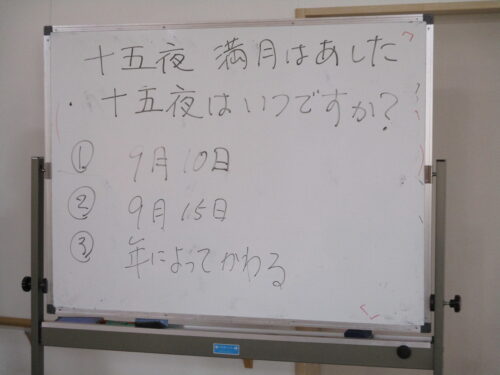 十五夜 満月はあした
・十五夜はいつですか?
① 9月10日
② 9月15日
③ 年によってかわる